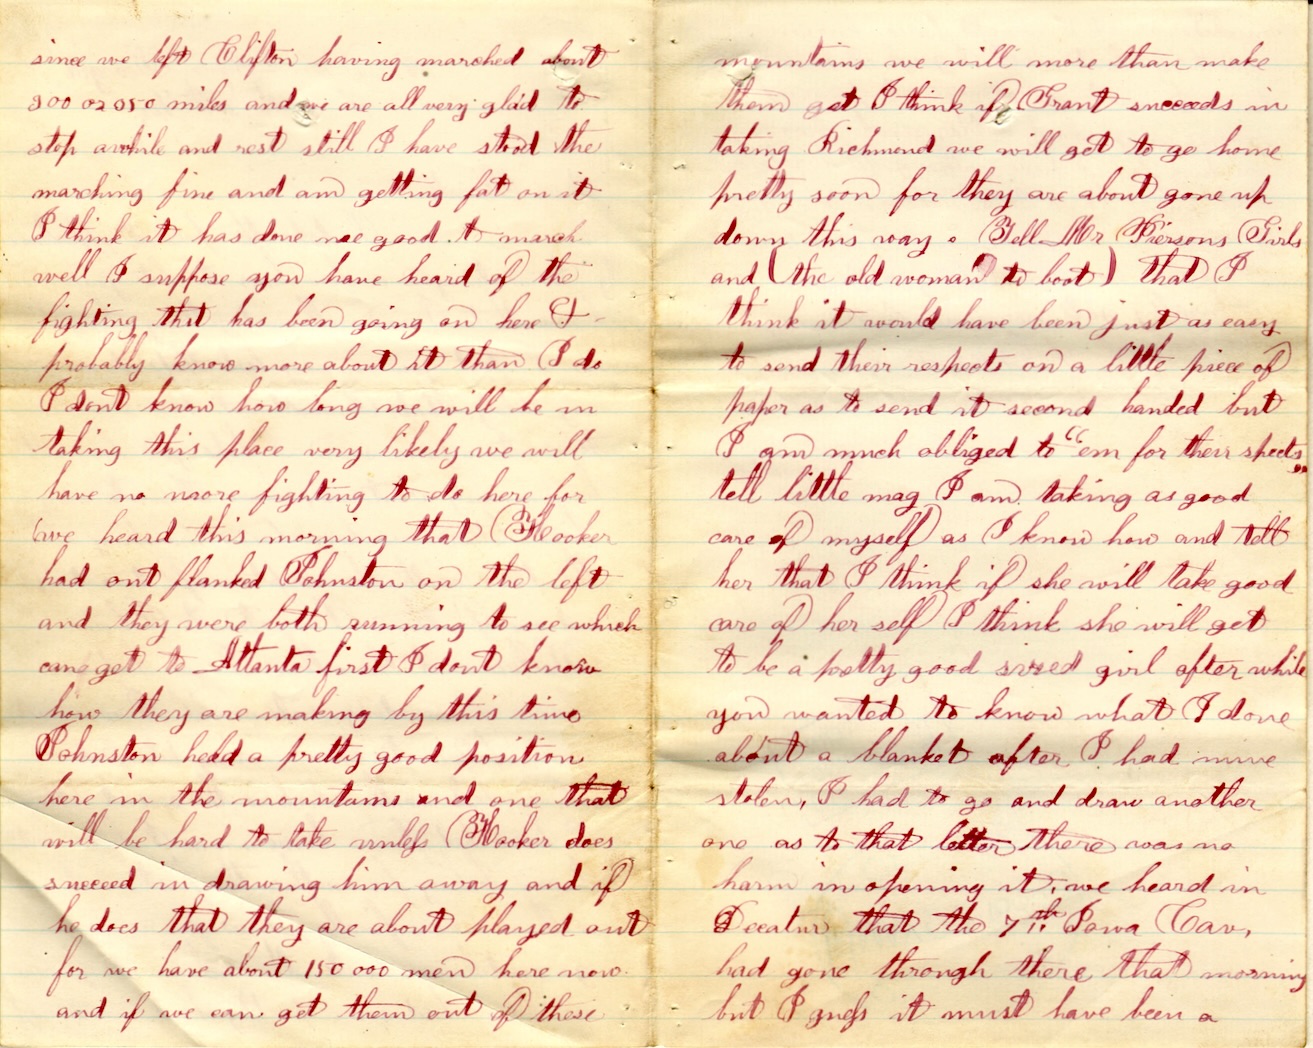 since we left Clifton having marched about
300 or 350 miles and we are all very glad to
stop awhile and rest still I have stood the
marching fine and am getting fat on it
I think it has done me good to march
well I suppose you have heard of the
fighting that has been going on here &
probably know more about it than I do
I dont know how long we will be in
taking this place very likely we will
have no more fighting to do here for
we heard this morning that Hooker
had out flanked Johnston on the left
and they were both running to see which
can get to Atlanta first I dont know
how they are making by this time
Johnston held a pretty good position
here in the mountains and one that
will be hard to take unless Hooker does
succeed in drawing him away and if
he does that they are about played out
for we have about 150 000 men here now
and if we can get them out of these
mountains we will more than make
them get I think if Grant succeeds in
taking Richmond we will get to go home
pretty soon for they are about gone up
down this way. Tell Mr Piersons Girls
and (the old woman to boot) that I
think it would have been just as easy
to send their respects on a little piece of
paper as to send it second handed but
I am much obliged to "em for their spects"
tell little mag I am taking as good
care of myself as I know how and tell
her that I think if she will take good
care of her self I think she will get
to be a pretty good sized girl after while
you wanted to know what I done
about a blanket after I had mine
stolen, I had to go and draw another
one as to that letter there was no
harm in opening it, we heard in
Decatur that the 7th Iowa Cav,
had gone through there that morning
but I guess it must have been a